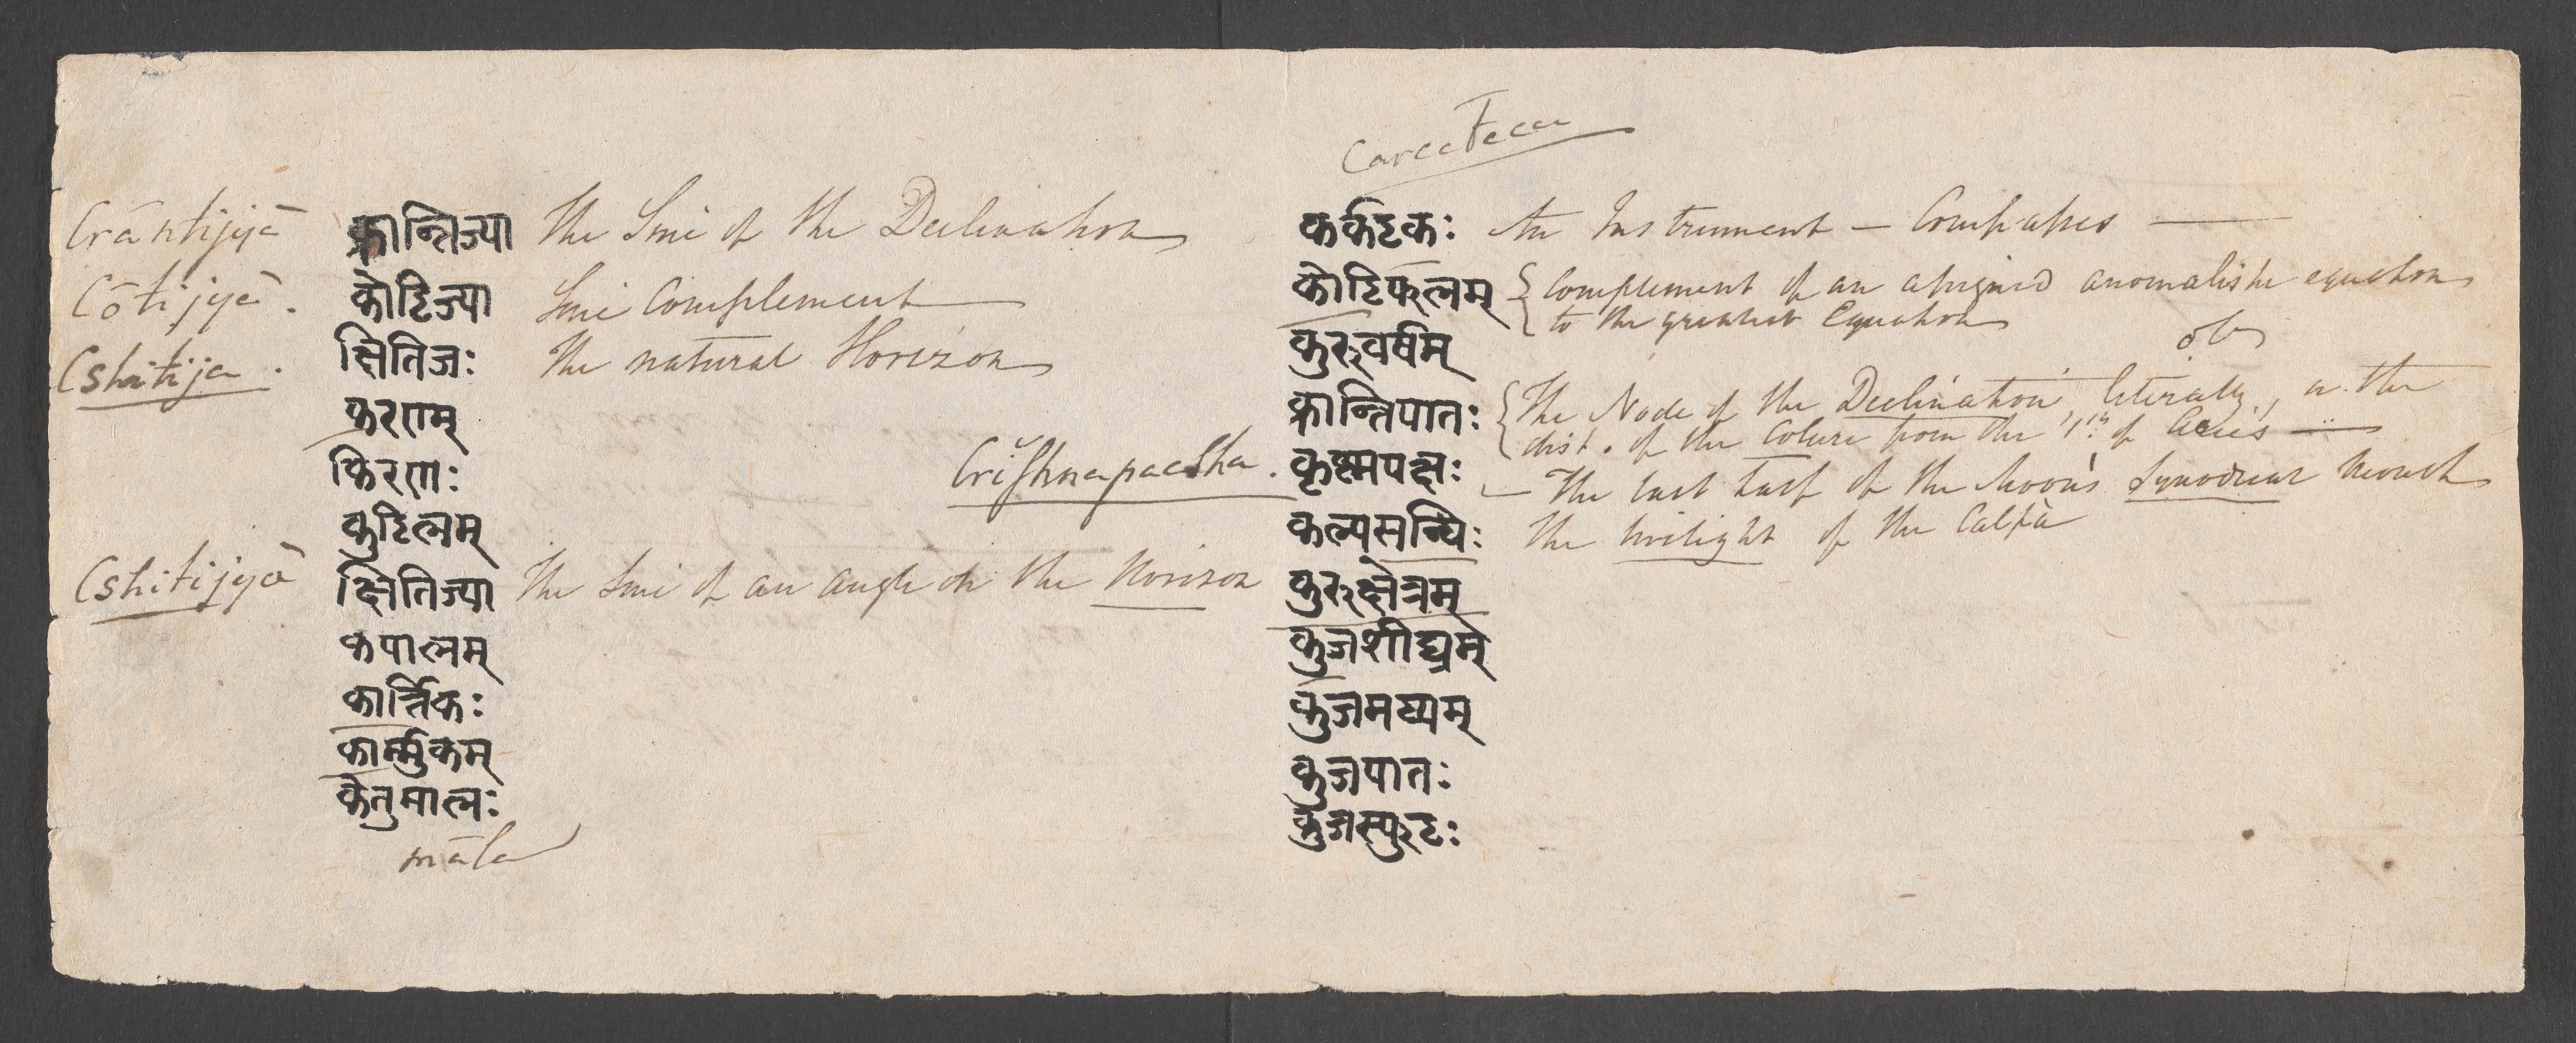 Crāntijyā क्रान्तिज्या The Sine of the Declination
Cōtijyā. कोटिज्या Sine Complement
Cshitija. क्षितिजः The natural Horizon
करणम्
किरणः
कुटिलम्
Cshitijyā क्षितिज्या The Sine of an angle on the Horizon
कपालम्
कार्त्तिकः
कार्म्मुकम्
केतुमालः
māla
कर्कटकः An Instrument — Compasses —
कोटिफलम् { Complement of an assigned anomalistic equation
to the greatest Equation
कुरुवर्षम्
क्रान्तिपातः { The Node of the Declination, literally, or the
dist. of the Colure from the 1st of Aries —
Crishnapacsha. कृष्णपक्षः — The last half of the Moon's Synodical Month
कल्पसन्धिः The twilight of the Calpa
कुरुक्षेत्रम्
कुजशीघ्रम्
कुजमध्यम्
कुजपातः
कुजस्फुटः